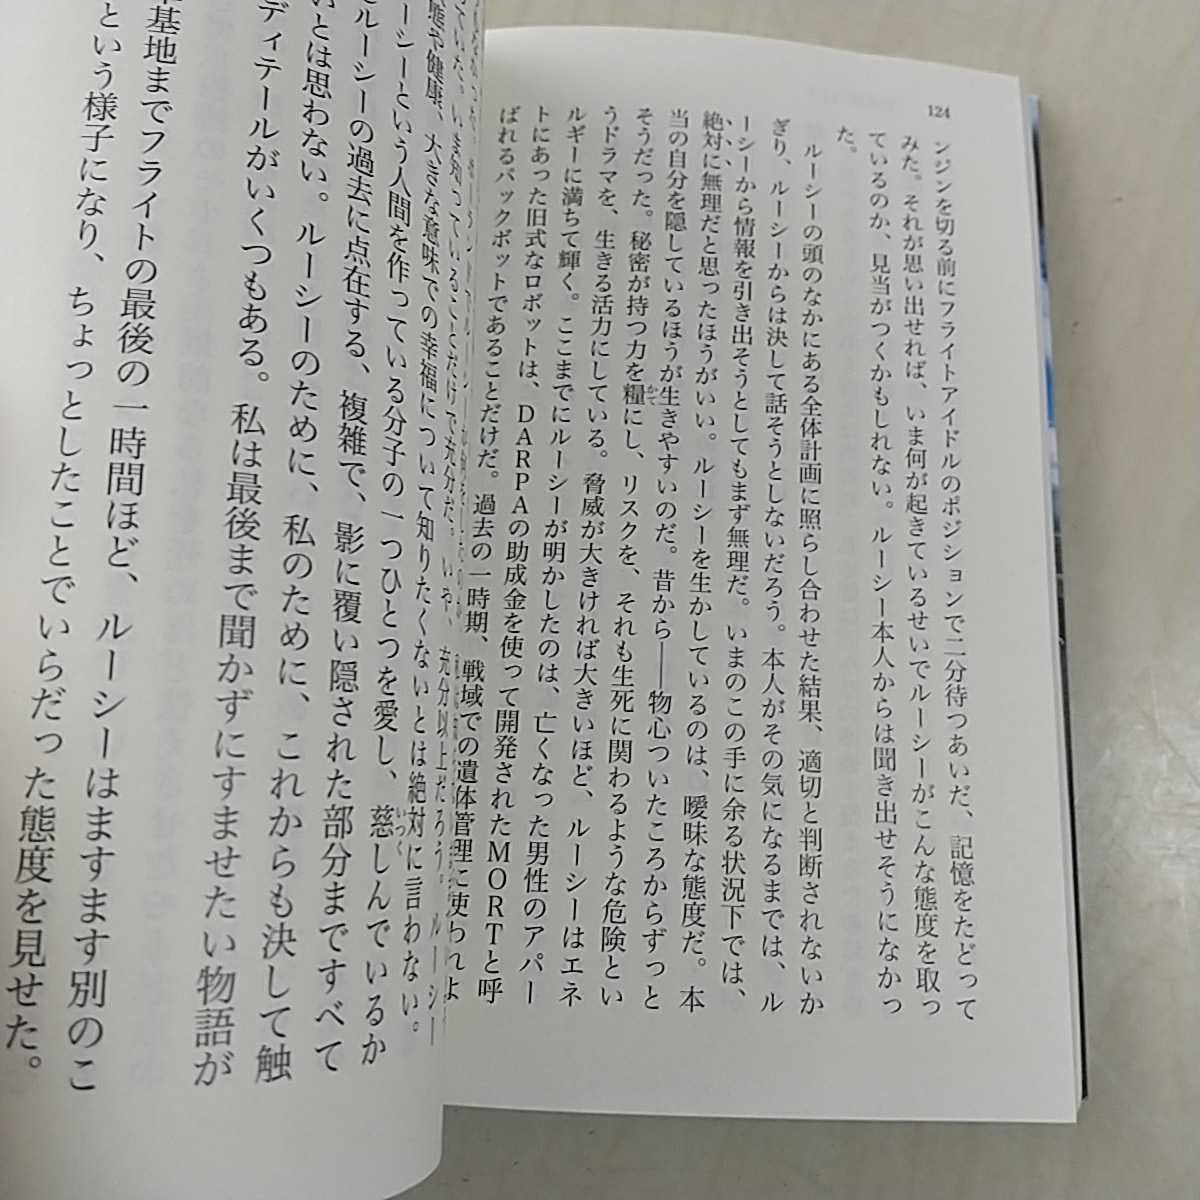 124
ンジンを切る前にフライトアイドルのポジションで二分待つあいだ、記憶をたどって
みた。それが思い出せれば、いま何が起きているせいでルーシーがこんな態度を取っ
ているのか、見当がつくかもしれない。ルーシー本人からは聞き出せそうになかっ
た。
ルーシーの頭のなかにある全体計画に照らし合わせた結果、適切と判断されないか
ぎり、ルーシーからは決して話そうとしないだろう。本人がその気になるまでは、ル
ーシーから情報を引き出そうとしてもまず無理だ。いまのこの手に余る状況下では、
絶対に無理だと思ったほうがいい。ルーシーを生かしているのは、曖昧な態度だ。本
当の自分を隠しているほうが生きやすいのだ。昔から――物心ついたころからずっと
そうだった。秘密が持つ力を糧にし、リスクを、それも生死に関わるような危険とい
かて
うドラマを、生きる活力にしている。脅威が大きければ大きいほど、ルーシーはエネ
ルギーに満ちて輝く。ここまでにルーシーが明かしたのは、亡くなった男性のアパー
トにあった旧式なロボットは、DARPAの助成金を使って開発されたMORTと呼
ばれるパックボットであることだけだ。過去の一時期、戦域での遺体管理に使われよ
ていた。いま知っていることだけで充分だ。いや、充分以上だろう。ルーシー
態や健康、大きな意味での幸福について知りたくないとは絶対に言わない。
ーシーという人間を作っている分子の一つひとつを愛し、慈しんでいるか
いつく
ルーシーの過去に点在する、複雑で、影に覆い隠された部分まですべて
いとは思わない。ルーシーのために、私のために、これからも決して触
ディテールがいくつもある。私は最後まで聞かずにすませたい物語が
基地までフライトの最後の一時間ほど、ルーシーはますます別のこ
という様子になり、ちょっとしたことでいらだった態度を見せた。